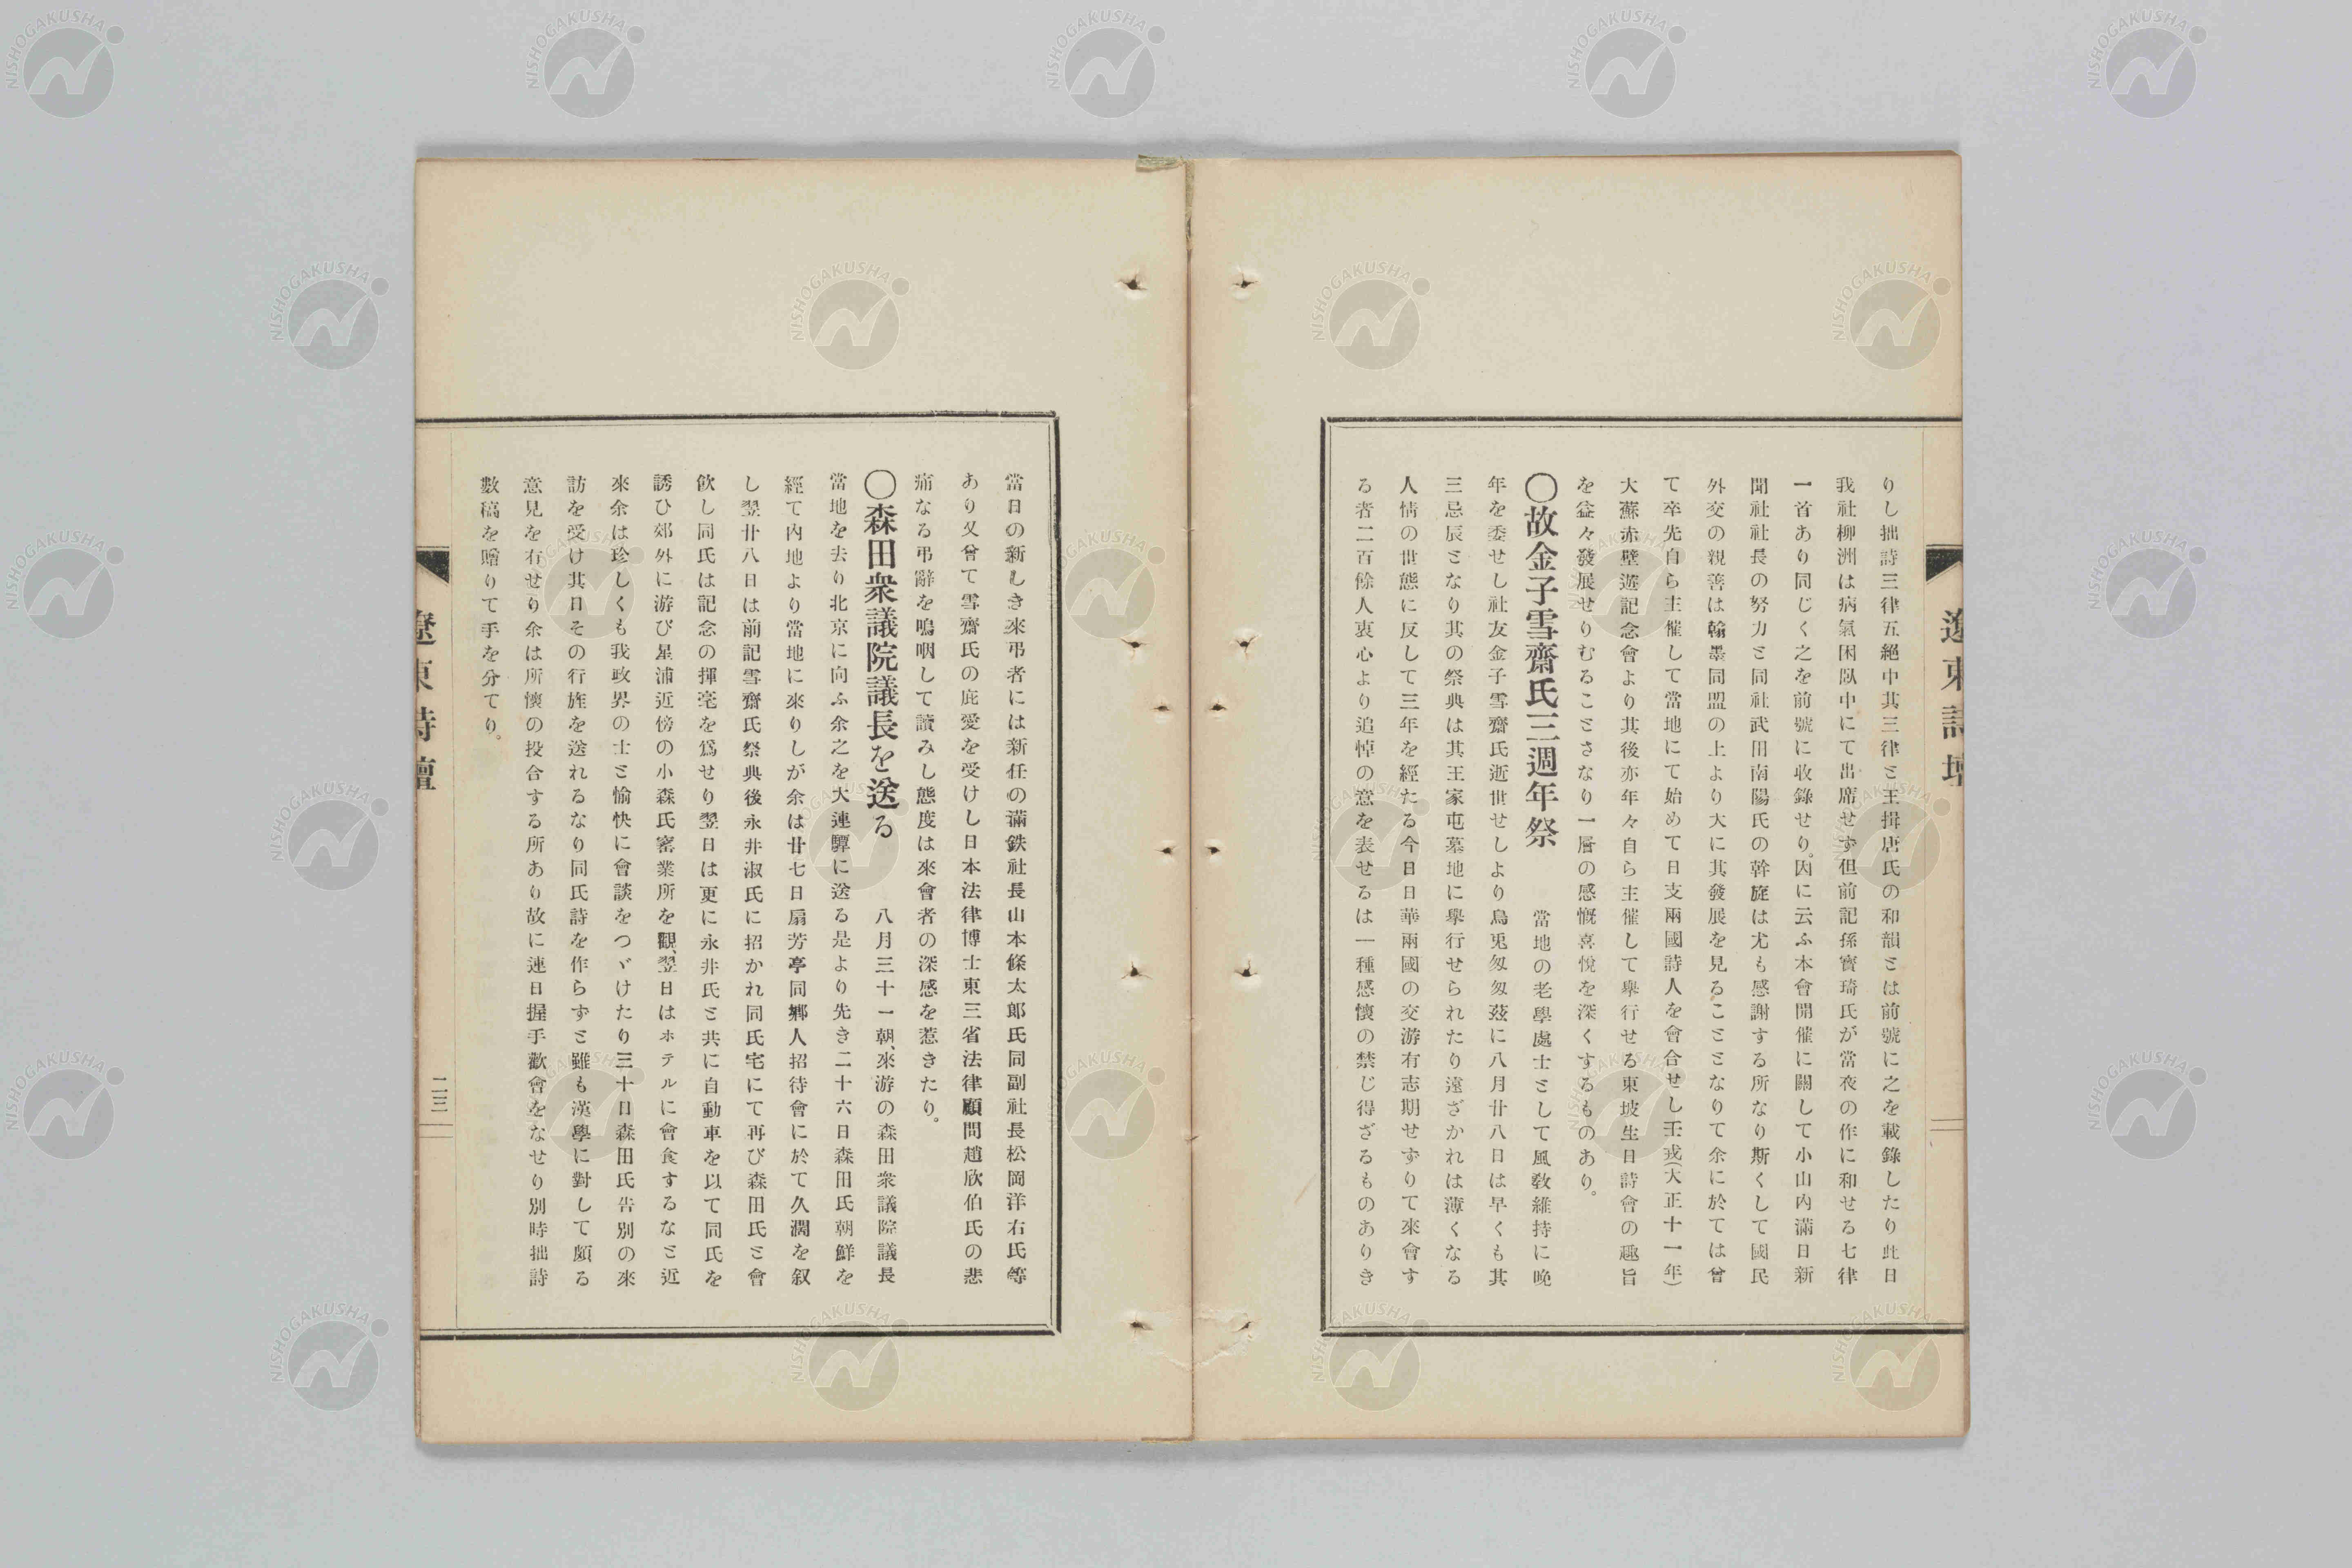 りし拙詩三律五絕中其三律と王揖唐氏の和韻とは前號に之を載錄したり此日
我社柳洲は病氣困臥中にて出席せず但前記孫寶琦氏が當夜の作に和せる七律
一首あり同じく之を前號に收錄せり。因に云ふ本會開催に關して小山內滿日新
聞社社長の努力と同社武田南陽氏の斡旋は尤も感謝する所なり斯くして國民
外交の親善は翰墨同盟の上より大に其發展を見ることとなりて余に於ては曾
て卒先自ら主催して當地にて始めて日支兩國詩人を會合せし壬戌(大正十一年)
大蘇赤壁遊記念會より其後亦年々自ら主催して擧行せる東坡生日詩會の趣旨
を益々發展せりむることさなり一層の感慨喜悅を深くするものあり。
〇故金子雪齋氏三週年祭 當地の老學處士として風敎維持に晩
年を委せし社友金子雪齋氏逝世せしより烏兎匆匆玆に八月廿八日は早くも其
三忌辰となり其の祭典は其王家屯墓地に擧行せられたり遠ざかれは薄くなる
人情の世態に反して三年を經たる今日日華兩國の交游有志期せずりて來會す
る者二百餘人衷心より追悼の意を表せるは一種感懷の禁じ得ざるものありき
遼東詩壇
當日の新しき來弔者には新任の滿鉄社長山本條太郞氏同副社長松岡洋右氏等
あり又曾て雪齋氏の庇愛を受けし日本法律博士東三省法律顧問趙欣伯氏の悲
痛なる弔辭を嗚咽して讀みし態度は來會者の深感を惹きたり。
〇森田衆議院議長を送る 八月三十一朝、來游の森田衆議院議長
當地を去り北京に向ふ余之を大連驛に送る是より先き二十六日森田氏朝鮮を
經て內地より當地に來りしが余は廿七日扇芳亭同鄕人招待會に於て久濶を叙
し翌廿八日は前記雪齋氏祭典後永井淑氏に招かれ同氏宅にて再び森田氏と會
飮し同氏は記念の揮毫を爲せり翌日は更に永井氏と共に自動車を以て同氏を
誘ひ郊外に游び星浦近傍の小森氏窑業所を觀、翌日はホテルに會食するなと近
來余は珍しくも我政界の士と愉快に會談をつゞけたり三十日森田氏告別の來
訪を受け其日その行旌を送れるなり同氏詩を作らずと雖も漢學に對して頗る
意見を有せり余は所懷の投合する所あり故に連日握手歡會をなせり別時拙詩
數稿を贈りて手を分てり。
遼東詩壇
二三